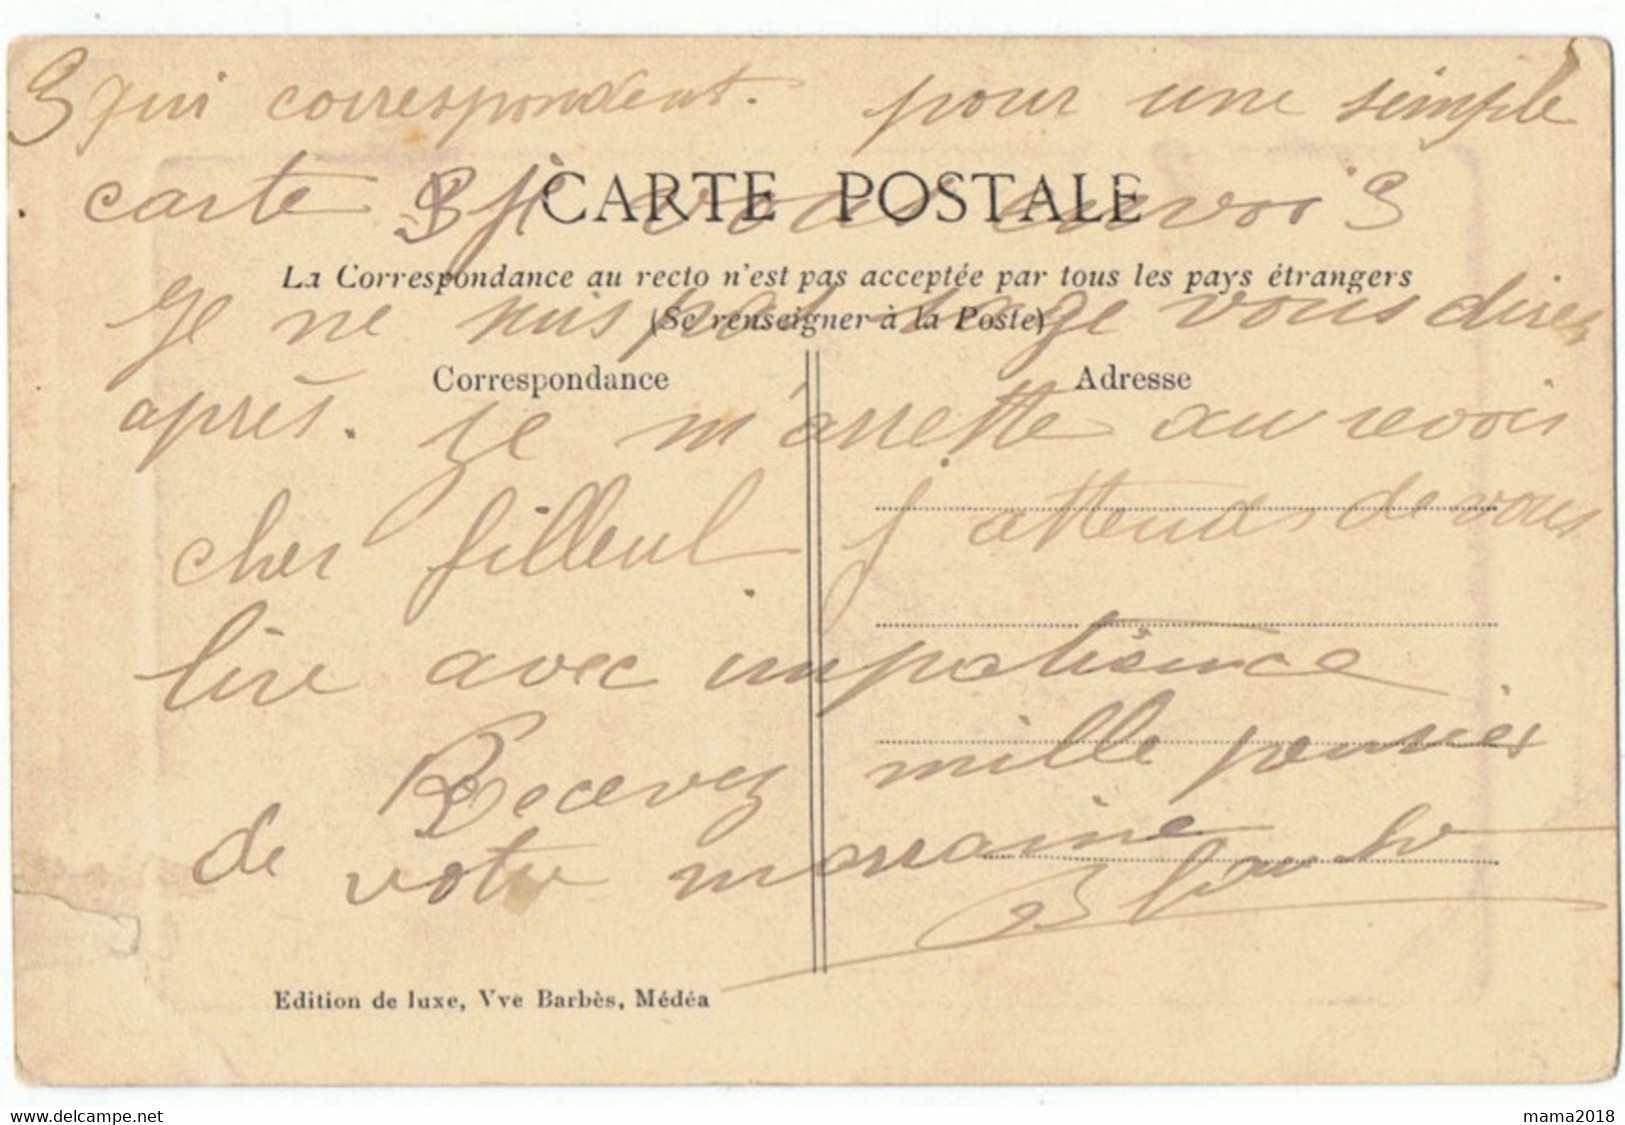 3 qui correspondent. pour une simple
carte 3 je vous envoi 3
CARTE POSTALE
La Correspondance au recto n'est pas acceptée par tous les pays étrangers
(Se renseigner à la Poste)
Je ne suis pas sage vous direz
Correspondance
Adresse
après. je m'arrette au revoir
cher filleul j'attends de vous
lire avec impatience
Recevez mille pensées
de votre marraine
Edition de luxe, Vve Barbès, Médéa
delcampe.net
mama2018